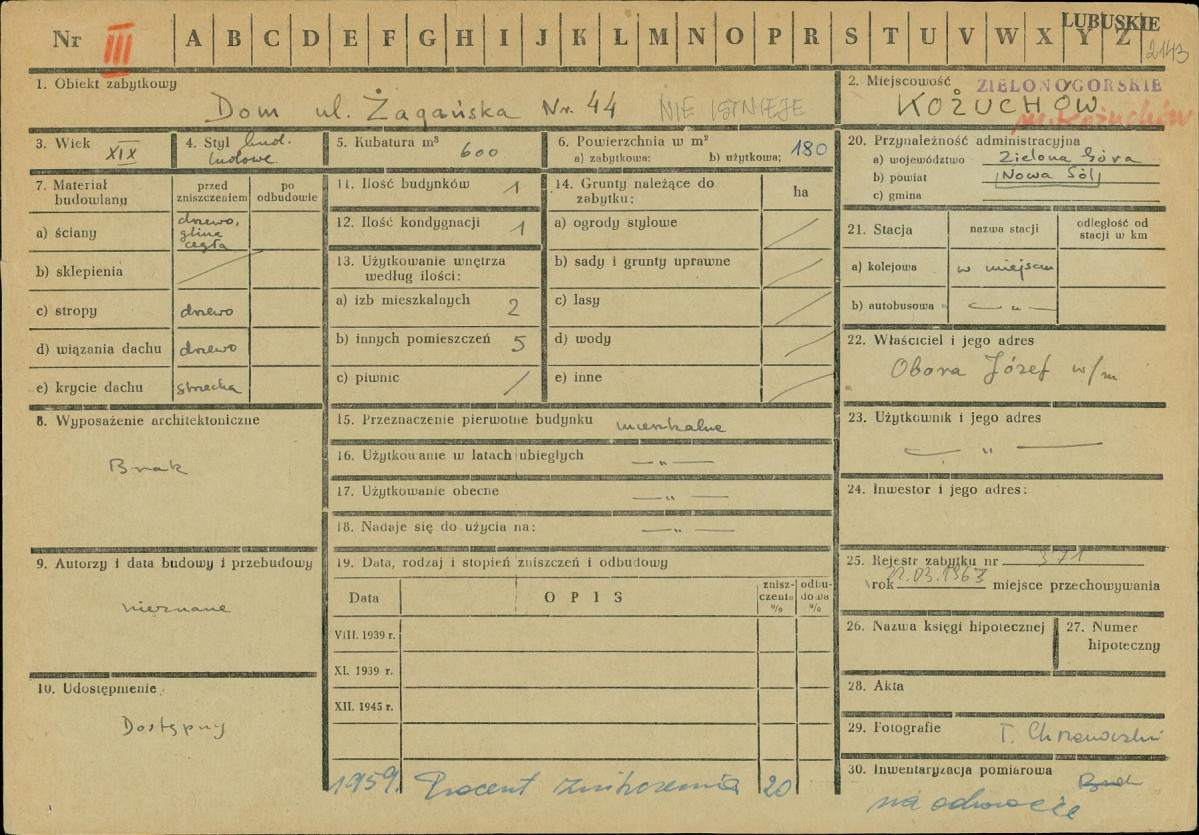 Nr III A B C D E F G H I J K L M N O P R S T U V W X Y Z LUBUSKIE
2143
1. Obiekt zabytkowy
Dom ul. Żagańska Nr. 44 NIE ISTNIEJE
2. Miejscowość ZIELONOGÓRSKIE
KOŻUCHÓW
m. Kożuchów
3. Wiek XIX
4. Styl bud.
ludowe
5. Kubatura m³ 600
6. Powierzchnia w m²
a) zabytkowa: b) użytkowa; 180
7. Materiał budowlany
przed zniszczeniem
po odbudowie
a) ściany drzewo, glina cegła
b) sklepienia
c) stropy drzewo
d) wiązania dachu drzewo
e) krycie dachu strzecha
8. Wyposażenie architektoniczne
Brak
9. Autorzy i data budowy i przebudowy
nieznane
10. Udostępnienie
Dostępny
11. Ilość budynków 1
12. Ilość kondygnacji 1
13. Użytkowanie wnętrza
według ilości:
a) izb mieszkalnych 2
b) innych pomieszczeń 5
c) piwnic /
14. Grunty należące do
zabytku: ha
a) ogrody stylowe
b) sady i grunty uprawne
c) lasy
d) wody
e) inne
15. Przeznaczenie pierwotne budynku mieszkalne
16. Użytkowanie w latach ubiegłych — „ —
17. Użytkowanie obecne — „ —
18. Nadaje się do użycia na: — „ —
19. Data, rodzaj i stopień zniszczeń i odbudowy
Data OPIS zniszczenia % odbudowa %
VIII. 1939 r.
XI. 1939 r.
XII. 1945 r.
1959. Procent zniszczenia 20
20. Przynależność administracyjna
a) województwo Zielona Góra
b) powiat Nowa Sól
c) gmina
21. Stacja nazwa stacji odległość od stacji w km
a) kolejowa w miejscu
b) autobusowa — „ —
22. Właściciel i jego adres
Obora Józef w/m
23. Użytkownik i jego adres
— „ —
24. Inwestor i jego adres:
25. Rejestr zabytku nr 371
rok 22.03.1963 miejsce przechowywania
26. Nazwa księgi hipotecznej
27. Numer hipoteczny
28. Akta
29. Fotografie T. Chrzanowski
30. Inwentaryzacja pomiarowa Brak
na odwrocie